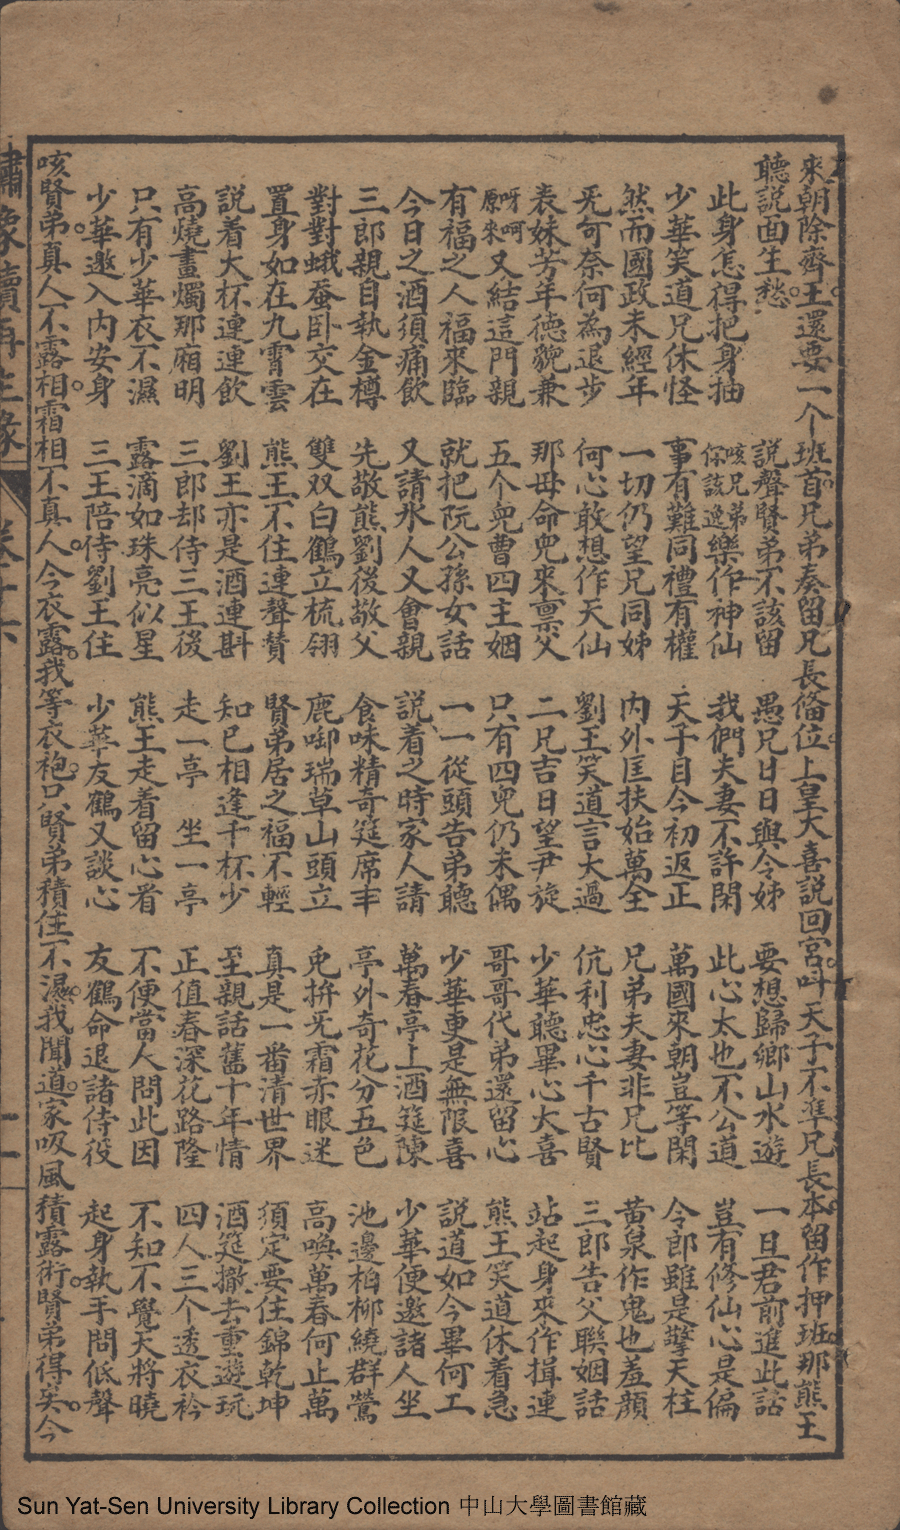 來朝除齊王還要一个班首兄弟奏留兄長俻位上皇大喜説回宮呌天子不準兄長本留作押班那熊王
聽説面生愁　説聲賢弟不該留　愚兄日日與令姊　要想歸鄉山水遊　一旦君前進此話
此身怎得把身抽　咳兄弟保該逸樂作神仙　我們夫妻不許閑　此心太也不公道　豈有修仙心是偏
少華笑道兄休怪　事有難同禮有權　天子目今初返正　萬國來朝豈等閑　令郎雖是擎天柱
然而國政未經年　一切仍望兄同姊　内外匡扶始萬全　兄弟夫妻非兄比　黄泉作鬼也羞顔
旡可奈何為退步　何心敢想作天仙　劉王笑道言大過　伉利忠心千古賢　三郎告父聯姻話
表妹芳年德貌兼　那毋命兒來禀父　二兄吉日望尹旋　少華聽畢心大喜　站起身來作揖連
呀呵原來又結這門親　五个兒曹四主姻　只有四兒仍未偶　哥哥代弟還留心　熊王笑道休着急
有福之人福來臨　就把阮公孫女話　一一從頭告弟聽　少華更是無限喜　説道如今畢何工
今日之酒須痛飲　又請氷人又會親　説着之時家人請　萬春亭上酒筵陳　少華便邀諸人坐
三郎親自執金樽　先敬熊劉後敬父　食味精奇筵席丰　亭外奇花分五色　池邊栢柳繞群鶯
對對蛾蚕卧交在　雙双白鶴立梳翎　鹿啣瑞草山頭立　兎拚旡霜赤眼迷　高喚萬春何止萬
置身如在九霄雲　熊王不住連聲賛　賢弟居之福不輕　真是一番清世界　須定要住錦乾坤
説着大杯連連飲　劉王亦是酒連斟　知已相逢千杯少　至親話舊十年情　酒筵撤去重遊玩
高燒畫燭那廂明　三郎却侍三王後　走一亭　坐一亭　正值春深花路隆　四人三个透衣衿
只有少華衣不濕　露滴如珠亮似星　熊王走着留心看　不便當人問此因　不知不覺天將曉
少華邀入内安身　三王陪侍劉王住　少華友鶴又談心　友鶴命退諸侍役　起身執手問低聲
咳賢弟真人不露相霜相不真人今衣露我等衣袍只賢弟積住不濕我聞道家吸風積露術賢弟得矣今
繡像續再生緣　卷十六　十一
Sun Yat-Sen University Library Collection 中山大學圖書館藏